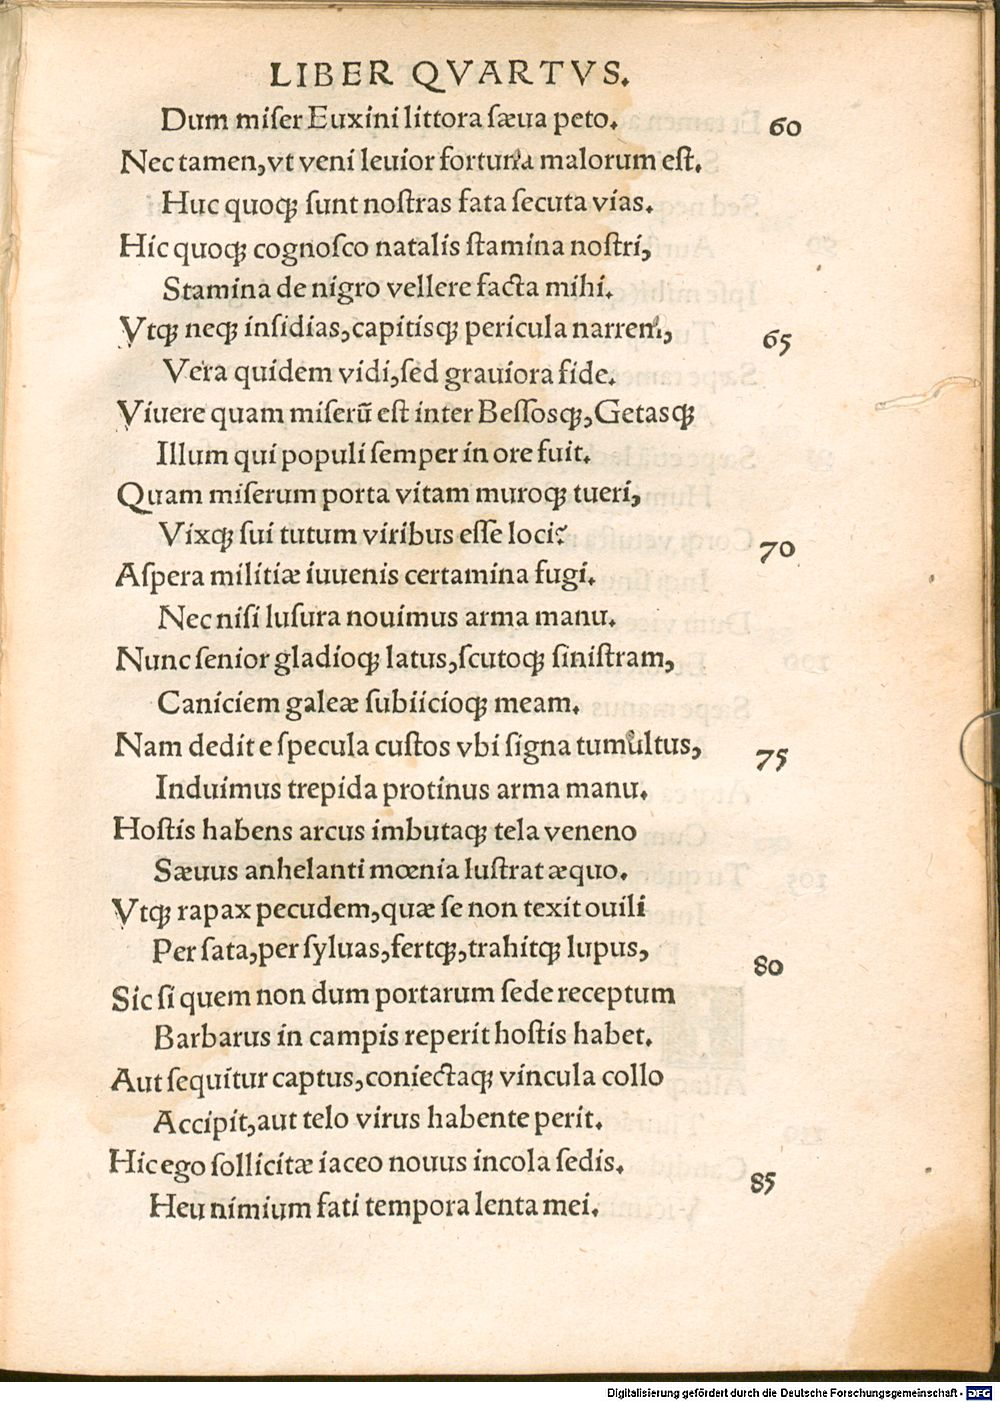 LIBER QVARTVS.
Dum miſer Euxini littora ſæua peto. 60
Nec tamen, vt veni leuior fortuna malorum eſt.
Huc quoqꝫ ſunt noſtras fata ſecuta vias.
Hic quoqꝫ cognoſco natalis ſtamina noſtri,
Stamina de nigro vellere facta mihi.
Vtqꝫ neqꝫ inſidias, capitisqꝫ pericula narrem, 65
Vera quidem vidi, ſed grauiora fide.
Viuere quam miſerū eſt inter Beſſosqꝫ, Getasqꝫ
Illum qui populi ſemper in ore fuit.
Quam miſerum porta vitam muroqꝫ tueri,
Vixqꝫ ſui tutum viribus eſſe loci? 70
Aſpera militiæ iuuenis certamina fugi.
Nec niſi luſura nouimus arma manu.
Nunc ſenior gladioqꝫ latus, ſcutoqꝫ ſiniſtram,
Caniciem galeæ ſubiicioqꝫ meam.
Nam dedit e ſpecula cuſtos vbi ſigna tumultus, 75
Induimus trepida protinus arma manu.
Hoſtis habens arcus imbutaqꝫ tela veneno
Sæuus anhelanti mœnia luſtrat æquo.
Vtqꝫ rapax pecudem, quæ ſe non texit ouili
Per ſata, per ſyluas, fertqꝫ, trahitqꝫ lupus, 80
Sic ſi quem non dum portarum ſede receptum
Barbarus in campis reperit hoſtis habet.
Aut ſequitur captus, coniectaqꝫ vincula collo
Accipit, aut telo virus habente perit.
Hic ego ſollicitæ iaceo nouus incola ſedis. 85
Heu nimium fati tempora lenta mei.
Digitalisierung gefördert durch die Deutsche Forschungsgemeinschaft - DFG